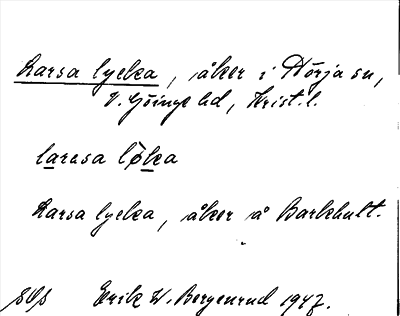 Larsa lycka, åker i Nörja sn,
V. Göinge hd, Krist. l.
larssa løka
Larsa lycka, åker å Barkhult.
Erik W. Bergenrud 1947.